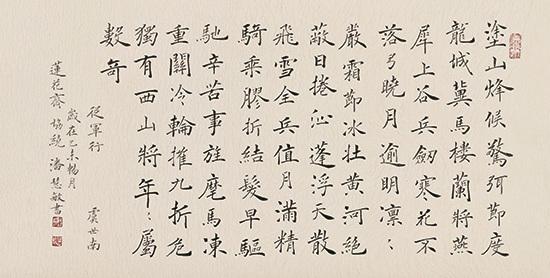 塗山烽候驚弭節度
龍城冀馬樓蘭將燕
犀上谷兵劒寒花不
落弓曉月逾明凜〻
嚴霜節冰壯黃河絕
蔽日捲征蓬浮天散
飛雪全兵值月滿精
騎乘膠折結髮早驅
馳辛苦事旌麾馬凍
重關冷輪摧九折危
獨有西山將年〻屬
數奇
從軍行 虞世南
歲在乙未暢月
蓮花齋 潘慧敏書